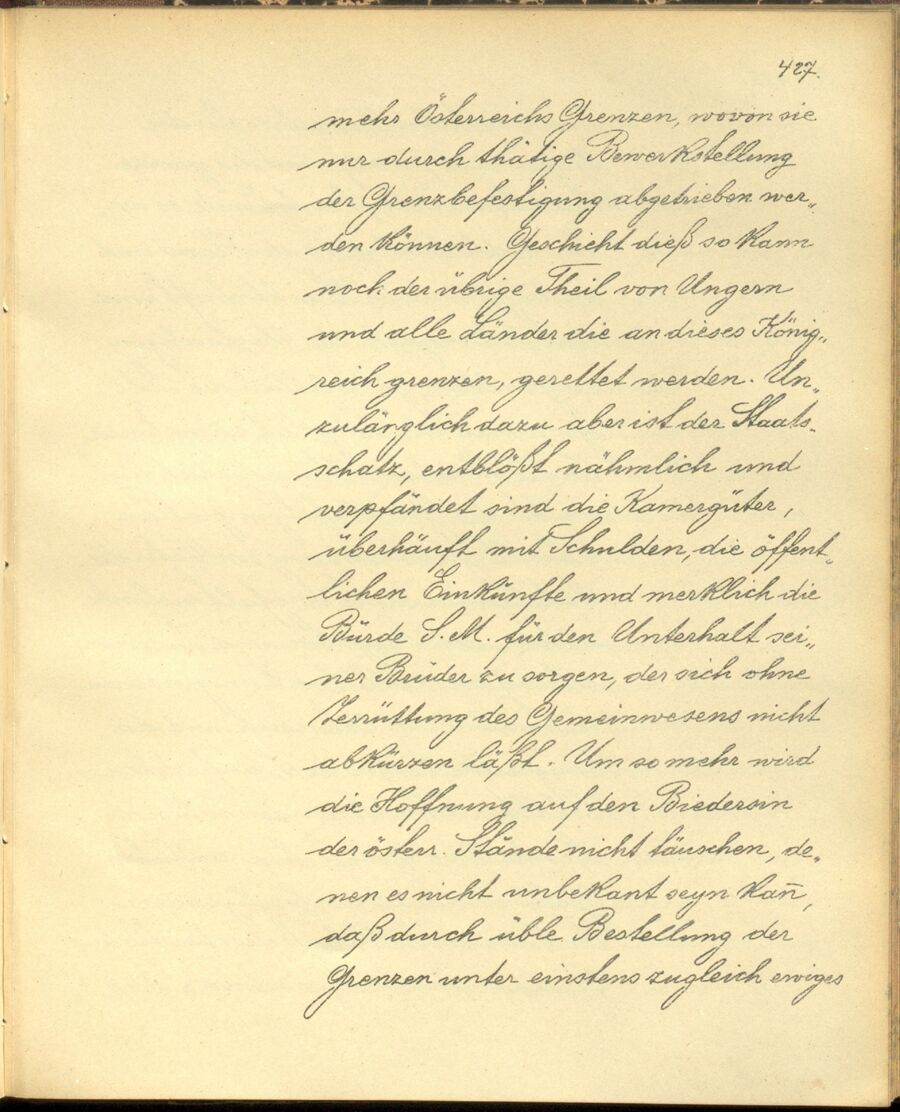 427.
mehr Österreichs Grenzen, wovon sie
nur durch thätige Bewerkstellung
der Grenzbefestigung abgetrieben wer„
den können. Geschicht dieß so kann
noch der übrige Theil von Ungern
und alle Länder die an dieses König„
reich grenzen, gerettet werden. Un„
zulänglich dazu aber ist der Staats„
schatz, entblößt nähmlich und
verpfändet sind die Kamergüter,
überhäuft mit Schulden, die öffent„
lichen Einkünfte und merklich die
Bürde S. M. für den Unterhalt sei„
ner Brüder zu sorgen, der sich ohne
Zerrüttung des Gemeinwesens nicht
abkürzen läßt. Um so mehr wird
die Hoffnung auf den Biedersin
der österr. Stände nicht täuschen, de„
nen es nicht unbekant seyn kan̅,
daß durch üble Bestellung der
Grenzen unter einstens zugleich ewiges